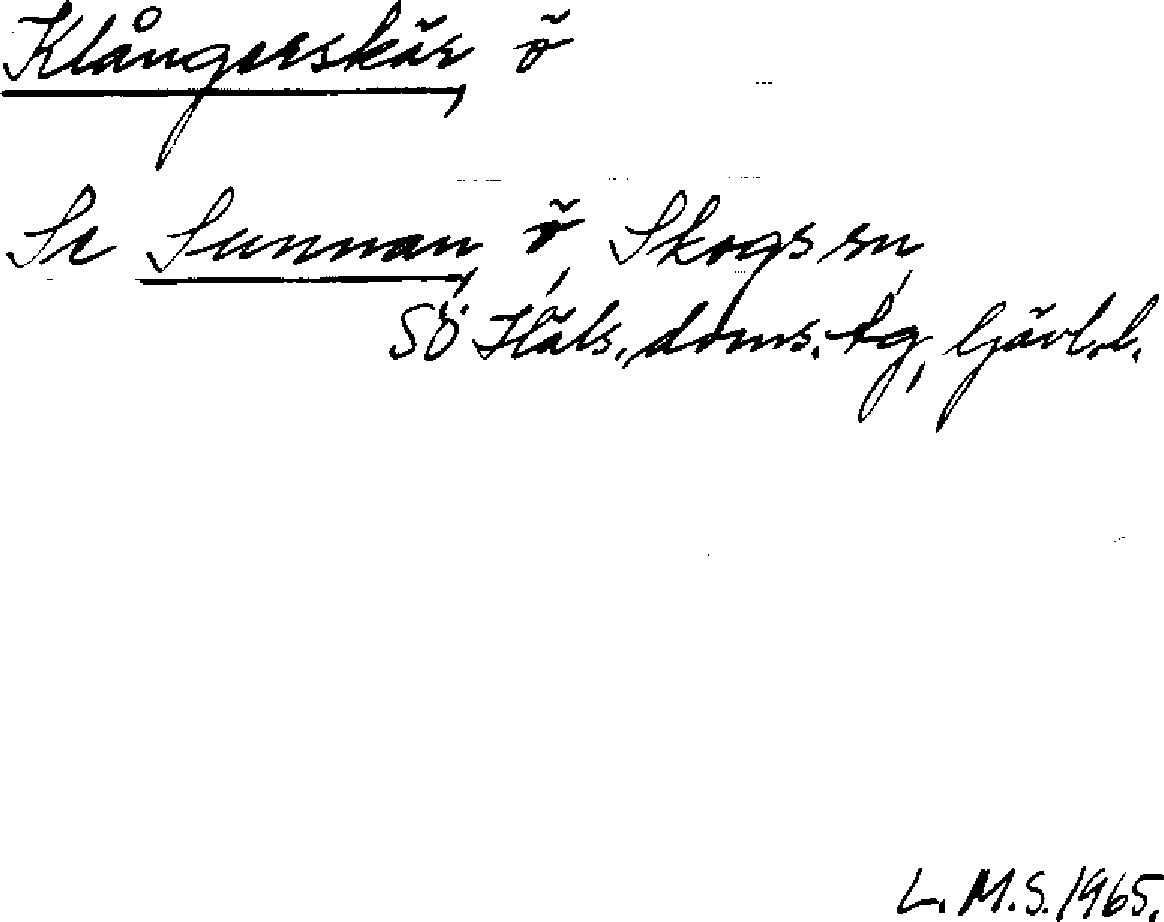 Klångerskär, ö
Se Sunnan, ö, Skogs sn,
SÖ Häls. doms. tg, Gävl. l.
L.M.S. 1965.